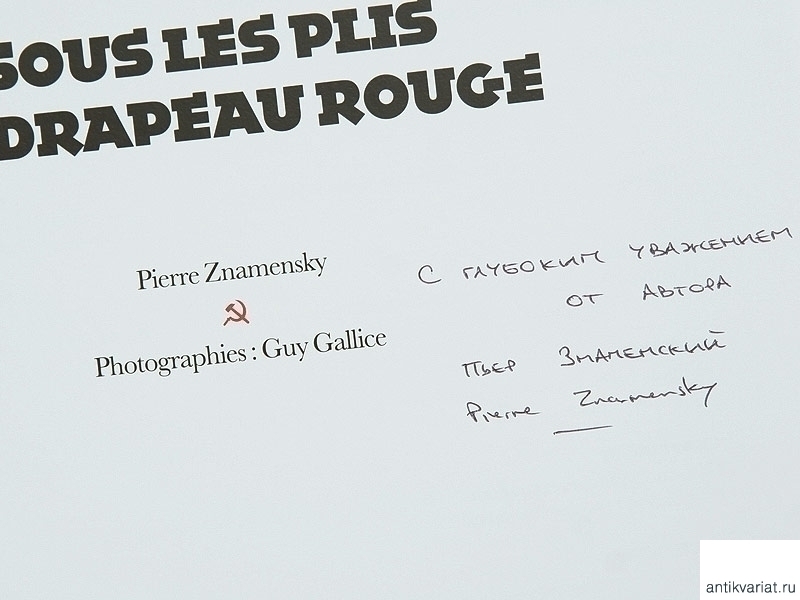 SOUS LES PLIS
DRAPEAU ROUGE
Pierre Znamensky
Photographies : Guy Gallice
С ГЛУБОКИМ УВАЖЕНИЕМ
ОТ АВТОРА
Пьер Знаменский
Pierre Znamensky
antikvariat.ru